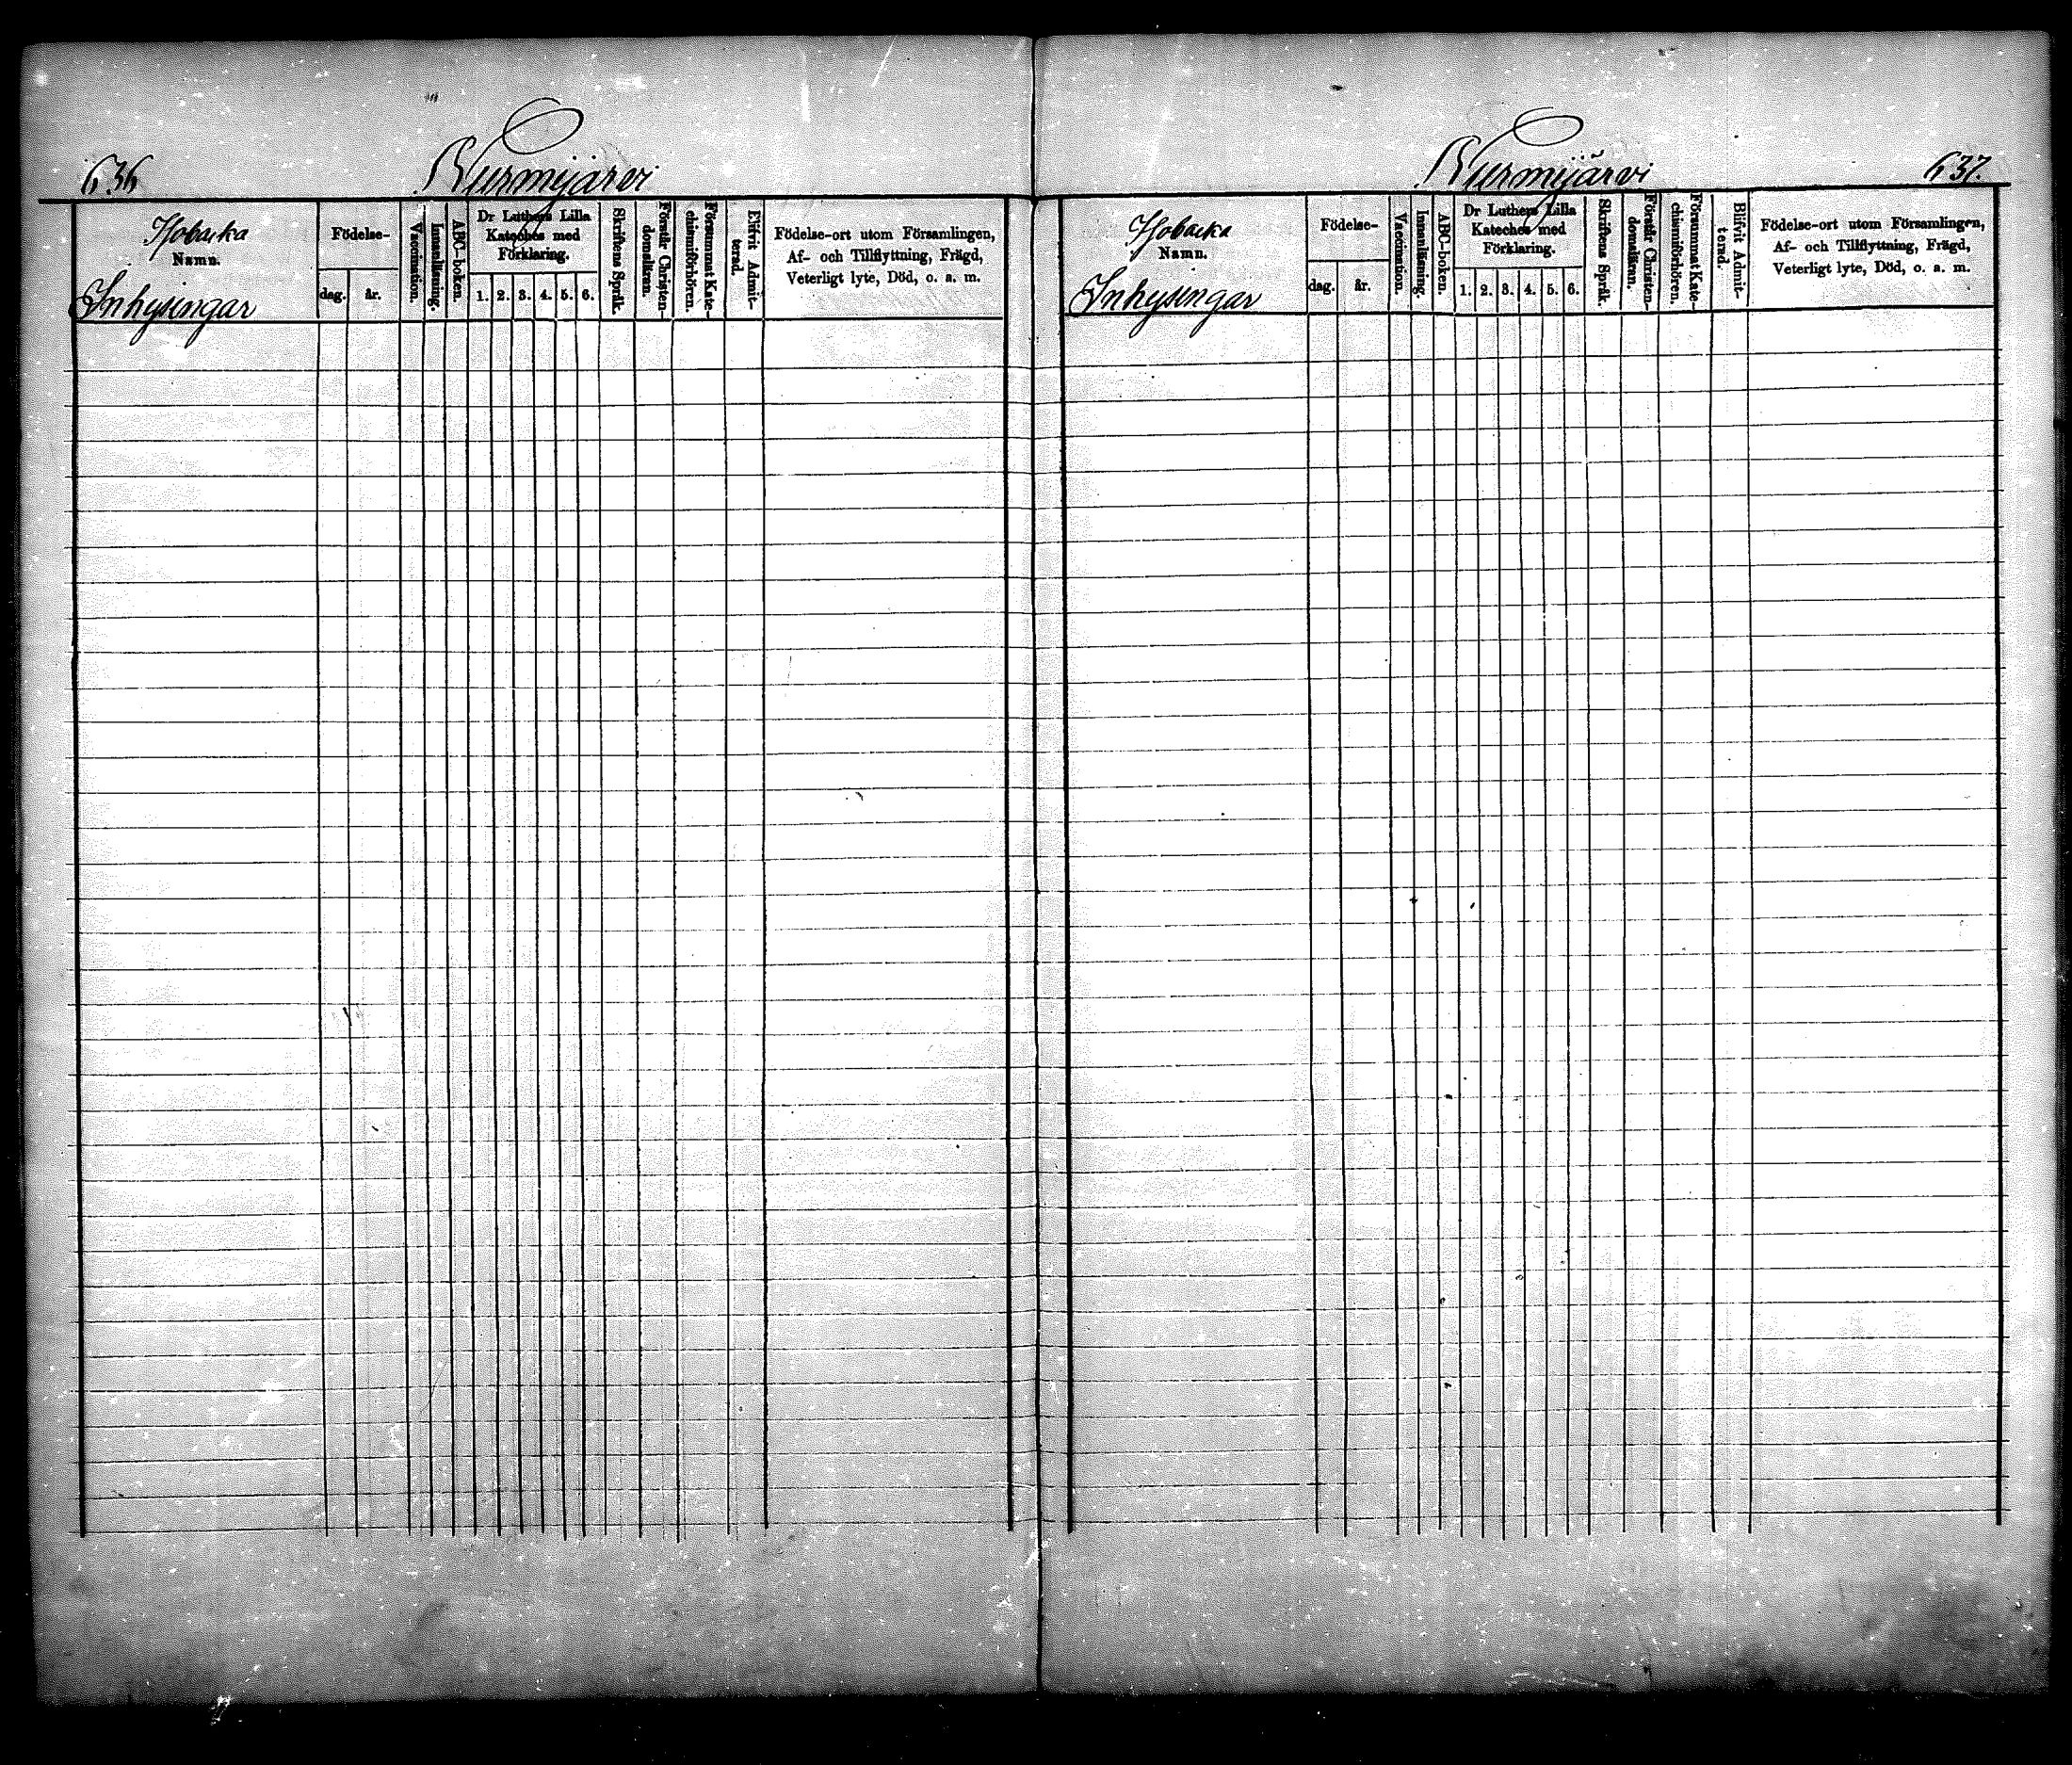 636
Nurmijärvi
Hobacka
Namn.
Inhysingar
Födelse-
dag.
år.
Vaccination.
Innanläsning.
ABC-boken.
Dr Luthers Lilla
Kateches med
Förklaring.
1. 2. 3. 4. 5. 6.
Skriftens Språk.
Förstår Christen-
domsläran.
Försummat Kate-
chismiförhören.
Blifvit Admit-
terad.
Födelse-ort utom Församlingen,
Af- och Tillflyttning, Frägd,
Veterligt lyte, Död, o. a. m.
Nurmijärvi
637.
Hobacka
Namn.
Inhysingar
Födelse-
dag.
år.
Vaccination.
Innanläsning.
ABC-boken.
Dr Luthers Lilla
Kateches med
Förklaring.
1. 2. 3. 4. 5. 6.
Skriftens Språk.
Förstår Christen-
domsläran.
Försummat Kate-
chismiförhören.
Blifvit Admit-
terad.
Födelse-ort utom Församlingen,
Af- och Tillflyttning, Frägd,
Veterligt lyte, Död, o. a. m.